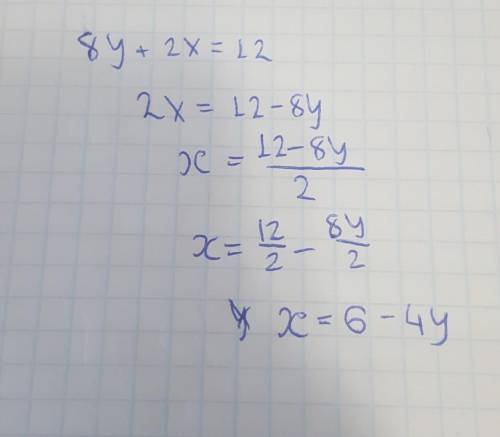 8y + 2x = 12
2x = 12 - 8y
x = \frac{12 - 8y}{2}
x = \frac{12}{2} - \frac{8y}{2}
x = 6 - 4y